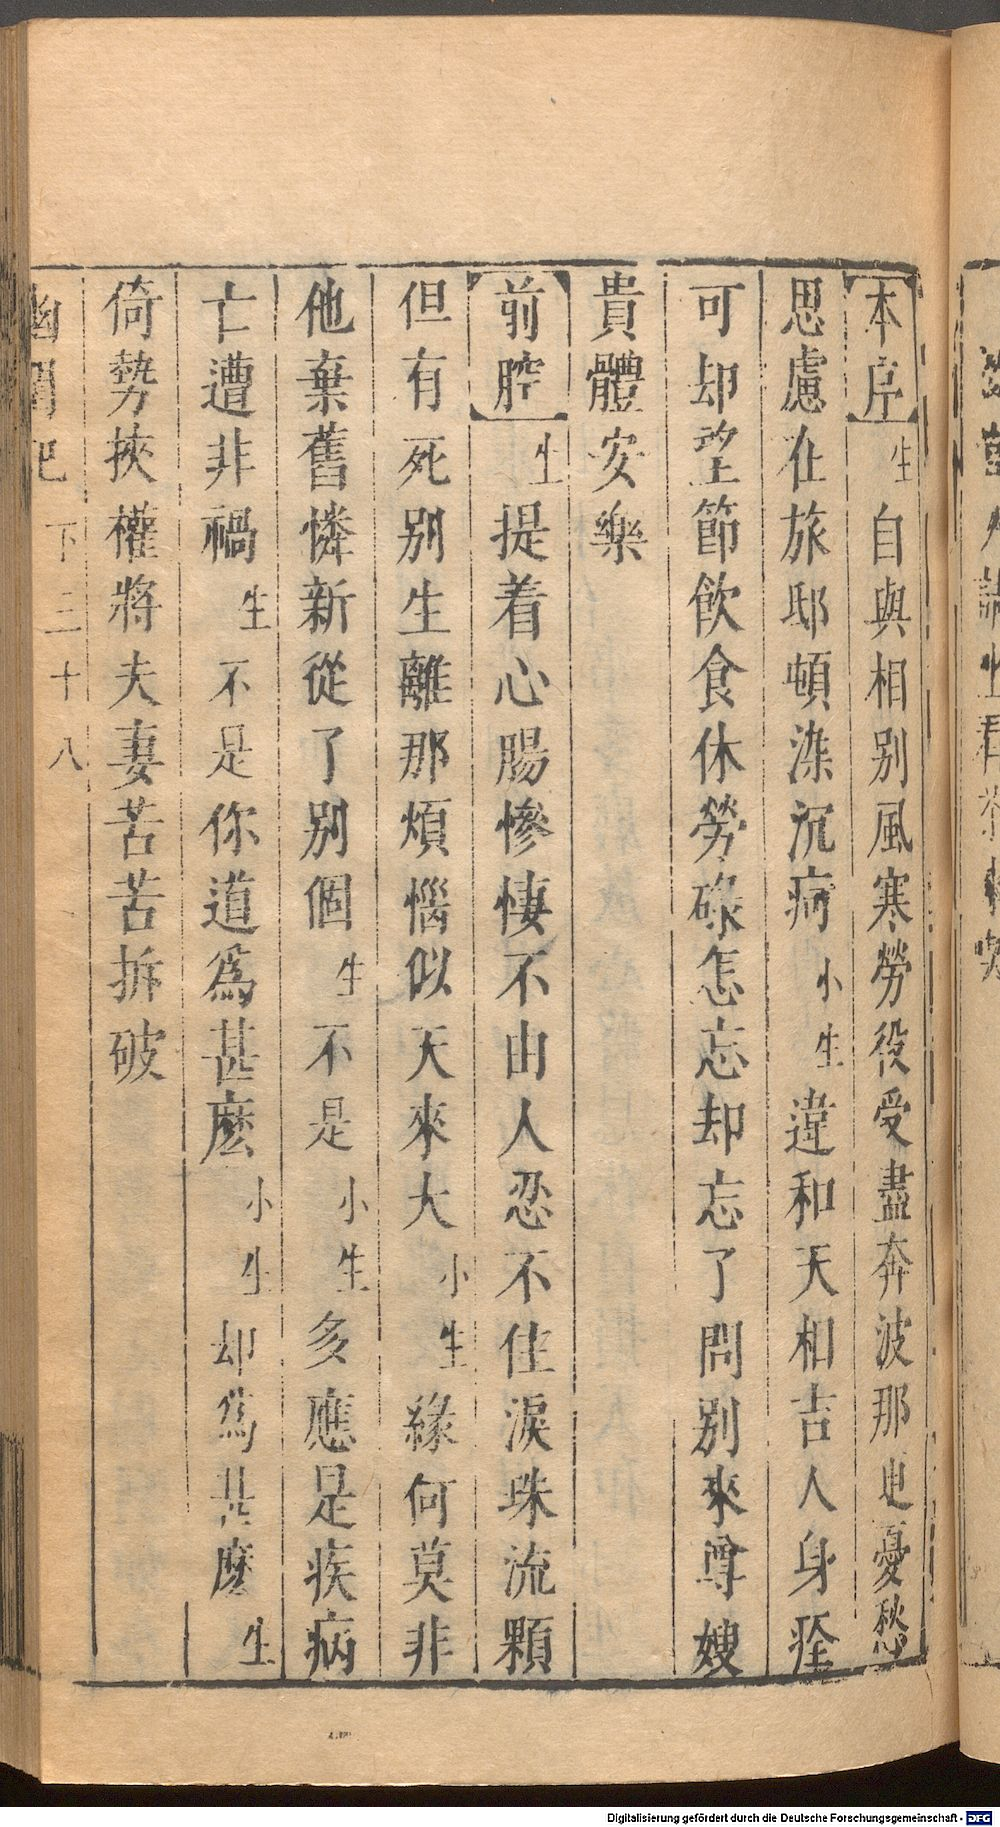 本序生自與相别風寒勞役受盡奔波那更憂愁
思慮在旅邸頓染沉疴小生違和天相吉人身痊
可却望節飲食休勞碌怎忘却忘了問别來尊嫂
貴體安樂
前腔生提着心腸慘悽不由人忍不住淚珠流顆
但有死别生離那煩惱似天來大小生緣何莫非
他棄舊憐新從了别個生不是小生多應是疾病
亡遭非禍生不是你道爲甚麽小生却爲甚麽生
倚勢挾權將夫妻苦苦拆破
幽閨記 下 三十八
Digitalisierung gefördert durch die Deutsche Forschungsgemeinschaft - DFG